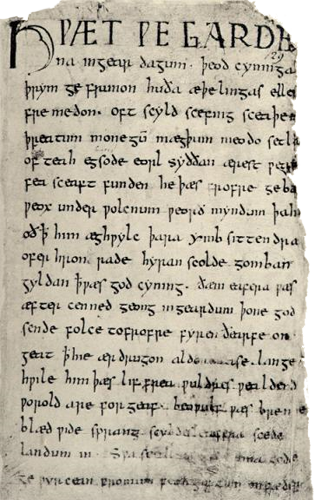 HǷÆT ǷE GARDE
na ingear dagum. þeod cyninga
þrym ge frunon huða æþelingas elle
fre medon. oft scyld scefing sceaþe
þreatum monegū mægþum meodo setla
of teah egsode eorl syððan ærest ƿear
fea sceaft funden he þæs frofre geba
ƿeox under ƿolcnum ƿeorð myndum þah
oð ꝥ him æghƿylc þara ymb sittendra
ofer hron rade hyran scolde gomban
gyldan ꝥ ƿæs god cyning. ðæm eafera ƿæs
æfter cenned geong ingeardum þone god
sende folce tofrofre fyren ðearfe on
geat ꝥ hie ær drugon lange
hƿile him þæs lif frea ƿuldres ƿealdend
ƿorold are for geaf. beoƿulf ƿæs breme
blæd ƿide sprang scyldes eafera scede
landum in. Sƿa gode
ge ƿyrcean fromum feoh giftum on fæder